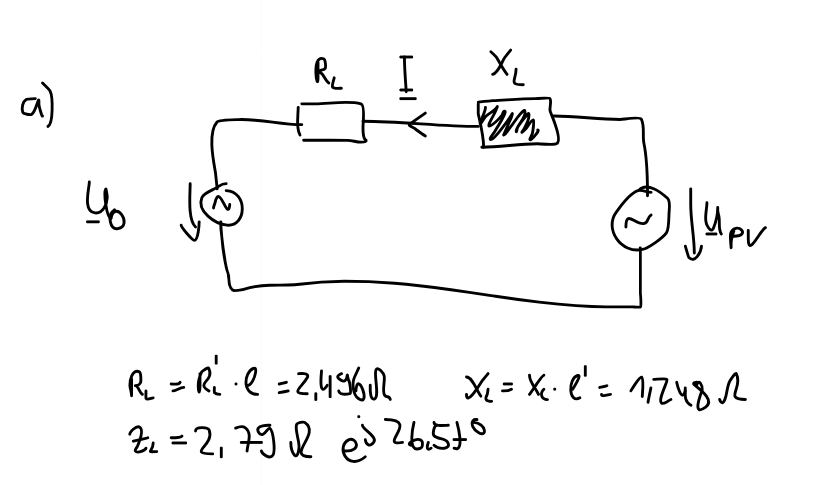 R_L I X_L
a)
U_0 U_PV
R_L = R_L' · l = 2,496Ω X_L = X_L · l' = 1,248 Ω
Z_L = 2,79 Ω e^j 26,57°